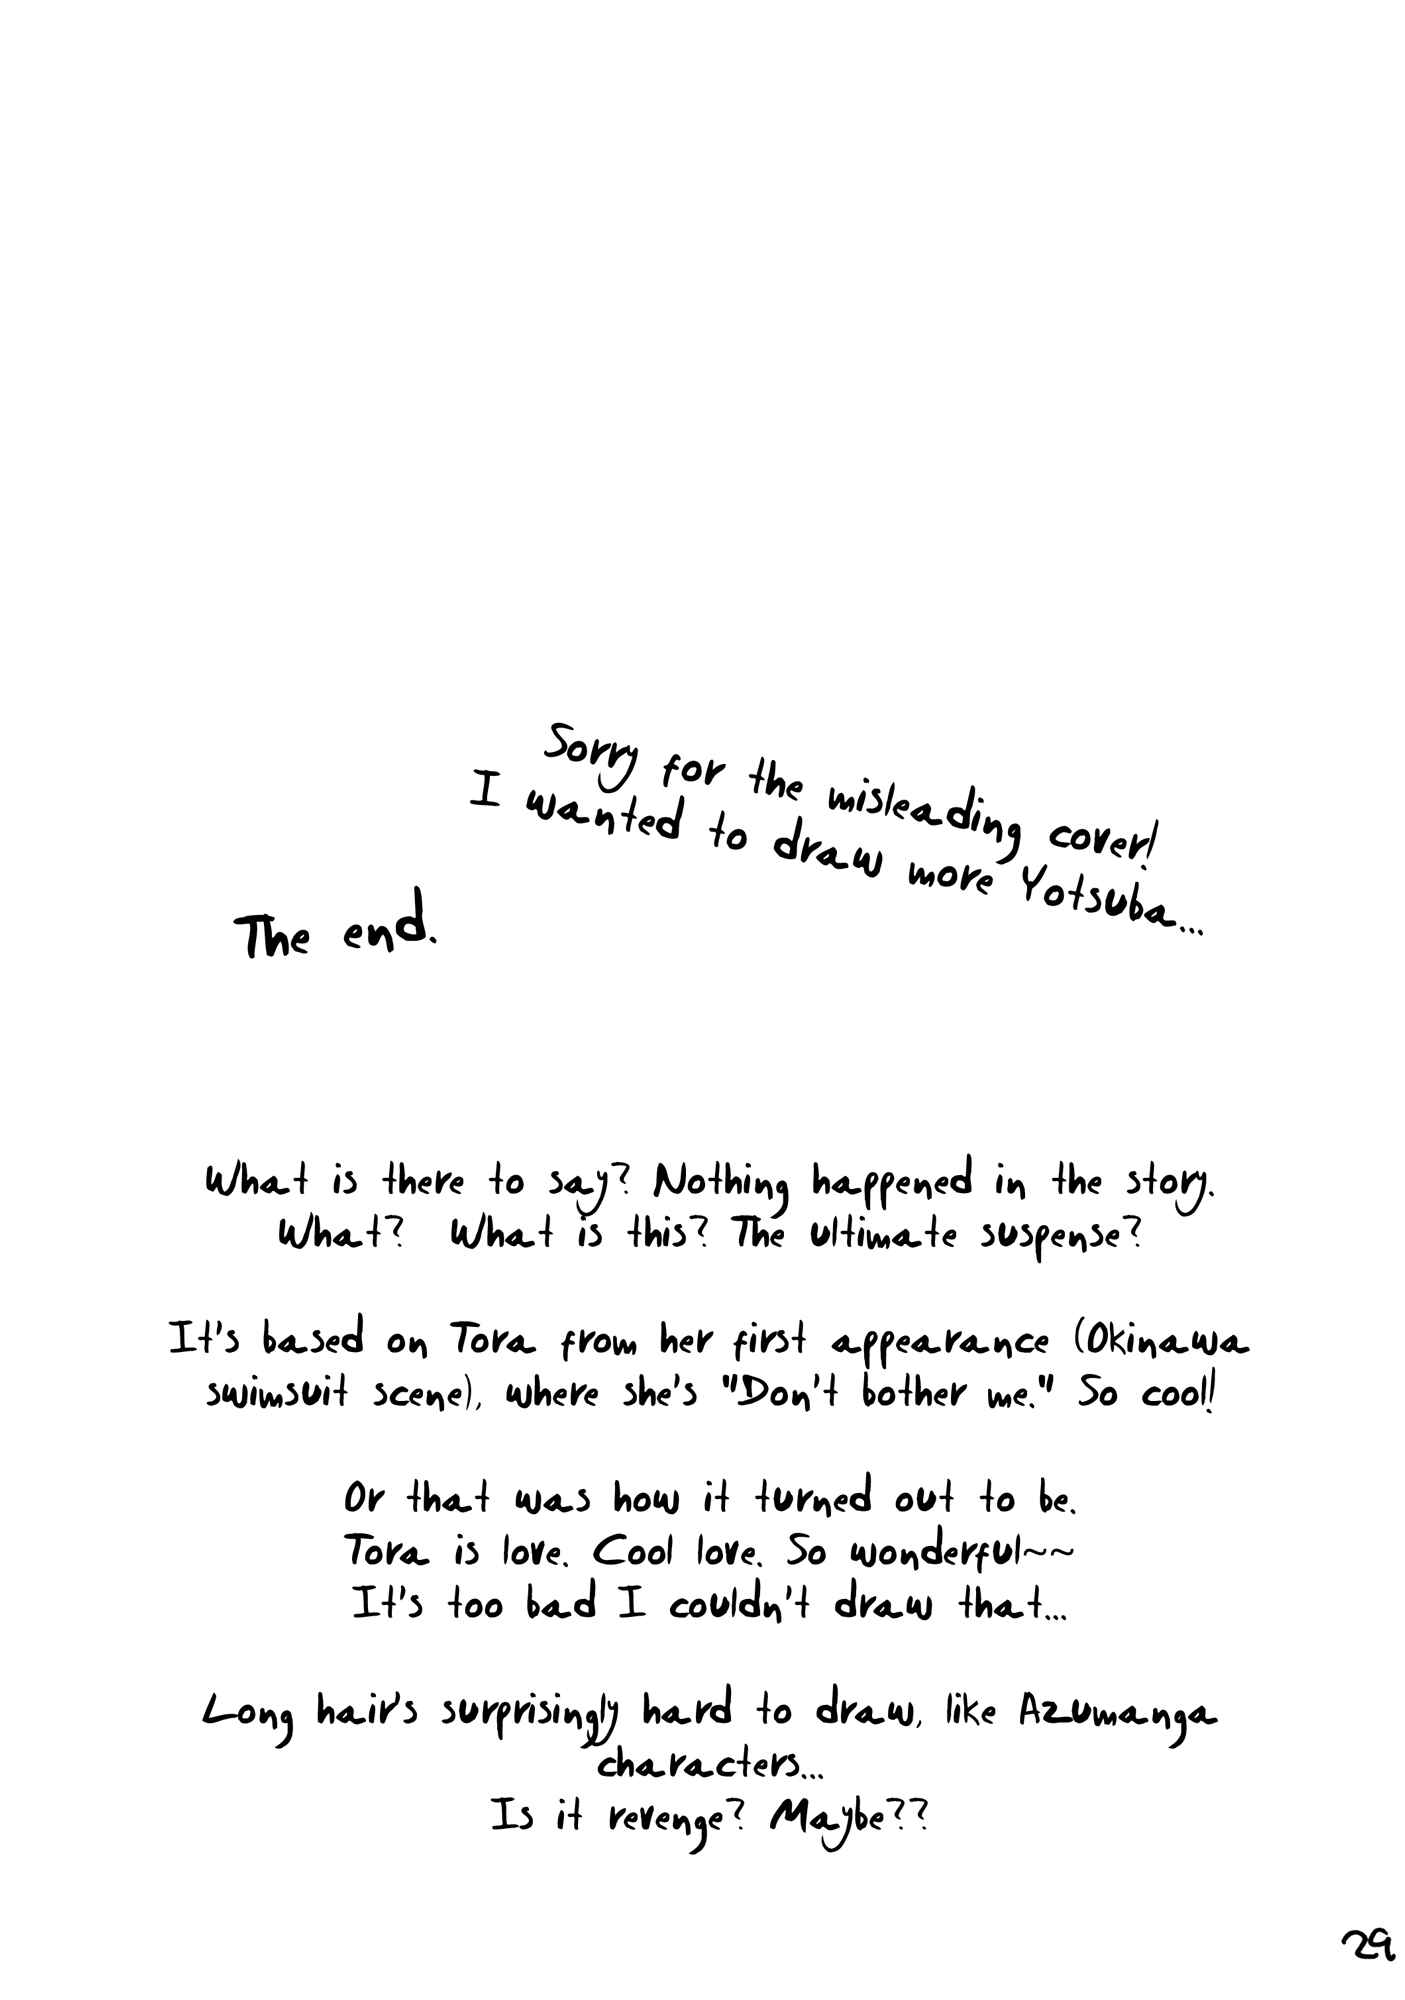 Sorry for the misleading cover!
I wanted to draw more Yotsuba...
The end.
What is there to say? Nothing happened in the story.
What? What is this? The ultimate suspense?
It's based on Tora from her first appearance (Okinawa
swimsuit scene), where she's "Don't bother me." So cool!
Or that was how it turned out to be.
Tora is love. Cool love. So wonderful~~
It's too bad I couldn't draw that...
Long hair's surprisingly hard to draw, like Azumanga
characters...
Is it revenge? Maybe??
29